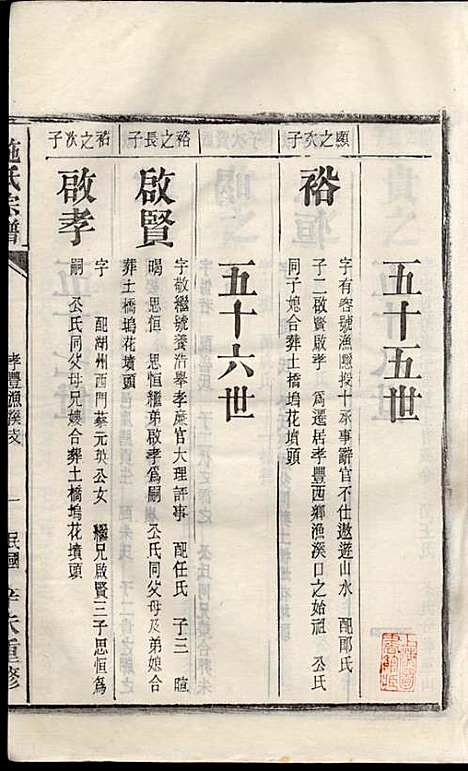 五十五世
顯之次子
裕
字有容號漁隱授十承事辭官不仕遨遊山水 配邵氏
子二啟賢啟孝 爲遷居孝豐西鄉漁溪口之始祖 公氏
同子媳合葬土橋塢花墳頭
五十六世
裕之長子
啟賢
字敬繼號養浩舉孝廉官大理評事 配任氏 子三 暄
暘 思恒 思恒繼弟啟孝爲嗣 公氏同父母及弟媳合
葬土橋塢花墳頭
裕之次子
啟孝
字 配湖州西門蔡元英公女 繼兄啟賢三子思恒爲
嗣 公氏同父母兄嫂合葬土橋塢花墳頭
施氏宗譜
孝豐漁溪支
一
民國 重修